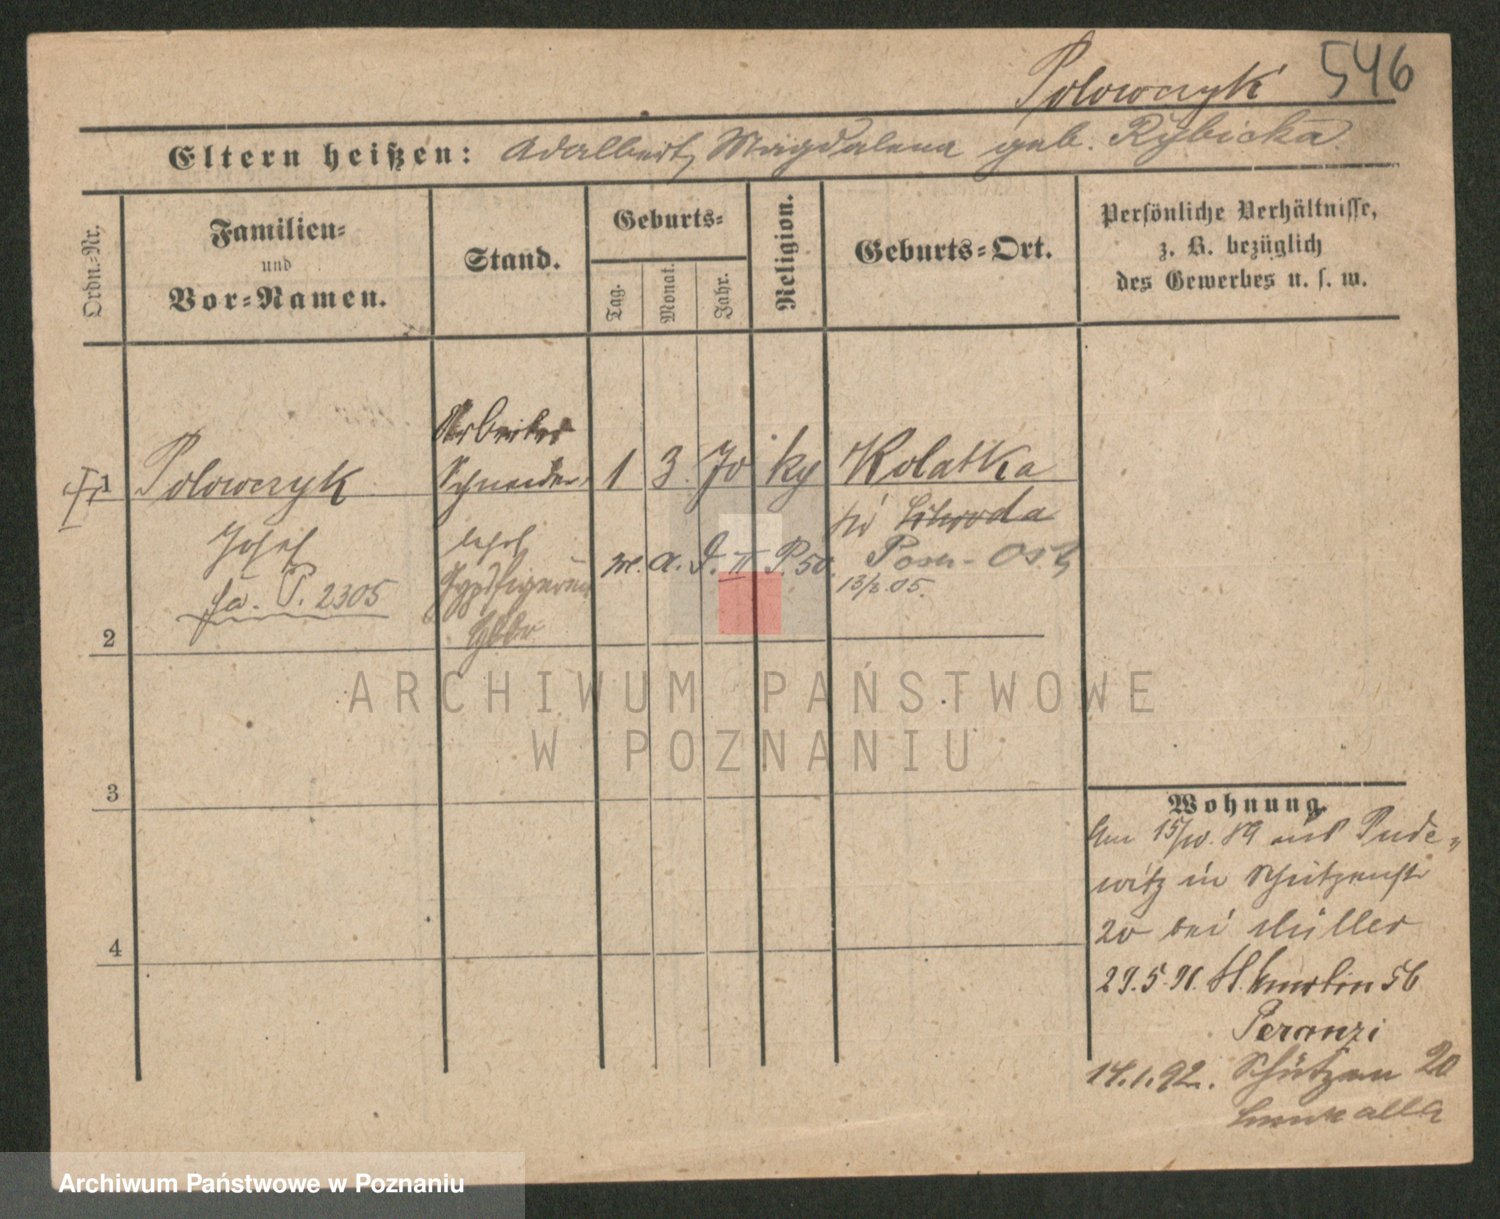 546
Polowczyk
Eltern heißen: Adalbert, Magdalena geb. Rybicka.
Ordn.-Nr.
Familien-
und
Vor-Namen.
Stand.
Geburts-
Tag.
Monat.
Jahr.
Religion.
Geburts-Ort.
Persönliche Verhältnisse,
z. B. bezüglich
des Gewerbes u. s. w.
Arbeiter
1 Polowczyk Schneider 1 3. 70 kg Kolatka
Josef
Posen-Ost
13/3.05.
P. 2305
2
3
4
Wohnung.
Am 15/10. 89 aus Pude-
witz in Schützenstr
20 bei Müller
29.5.91. St. Martin 56
14.1.92. Schützen 20
ARCHIWUM PAŃSTWOWE
W POZNANIU
Archiwum Państwowe w Poznaniu